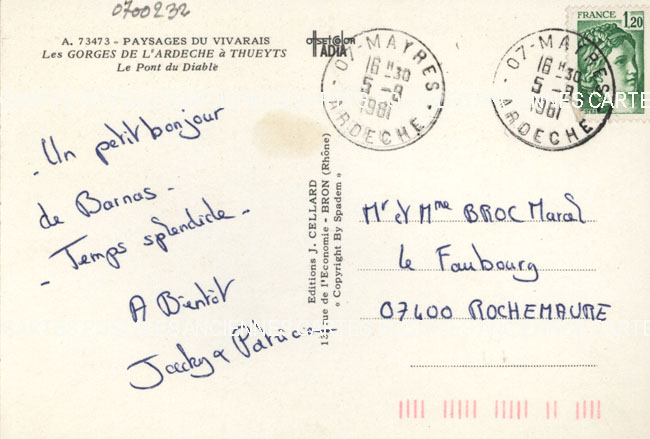 0700232
A. 73473 - PAYSAGES DU VIVARAIS
Les GORGES DE L'ARDECHE à THUEYTS
Le Pont du Diable
offset color
IADIA
07-MAYRES
16 H 30
5-9
1981
ARDECHE
07-MAYRES
16 H 30
5-9
1981
ARDECHE
FRANCE 1,20
- Un petit bonjour
de Barnas -
- Temps splendide -
A Bientôt
Jacky &
Editions J. CELLARD
rue de l'Economie - BRON (Rhône)
« Copyright By Spadem »
Mr et Mme BROC Marcel
le Faubourg
07400 ROCHEMAURE
ANCIENNES CARTE